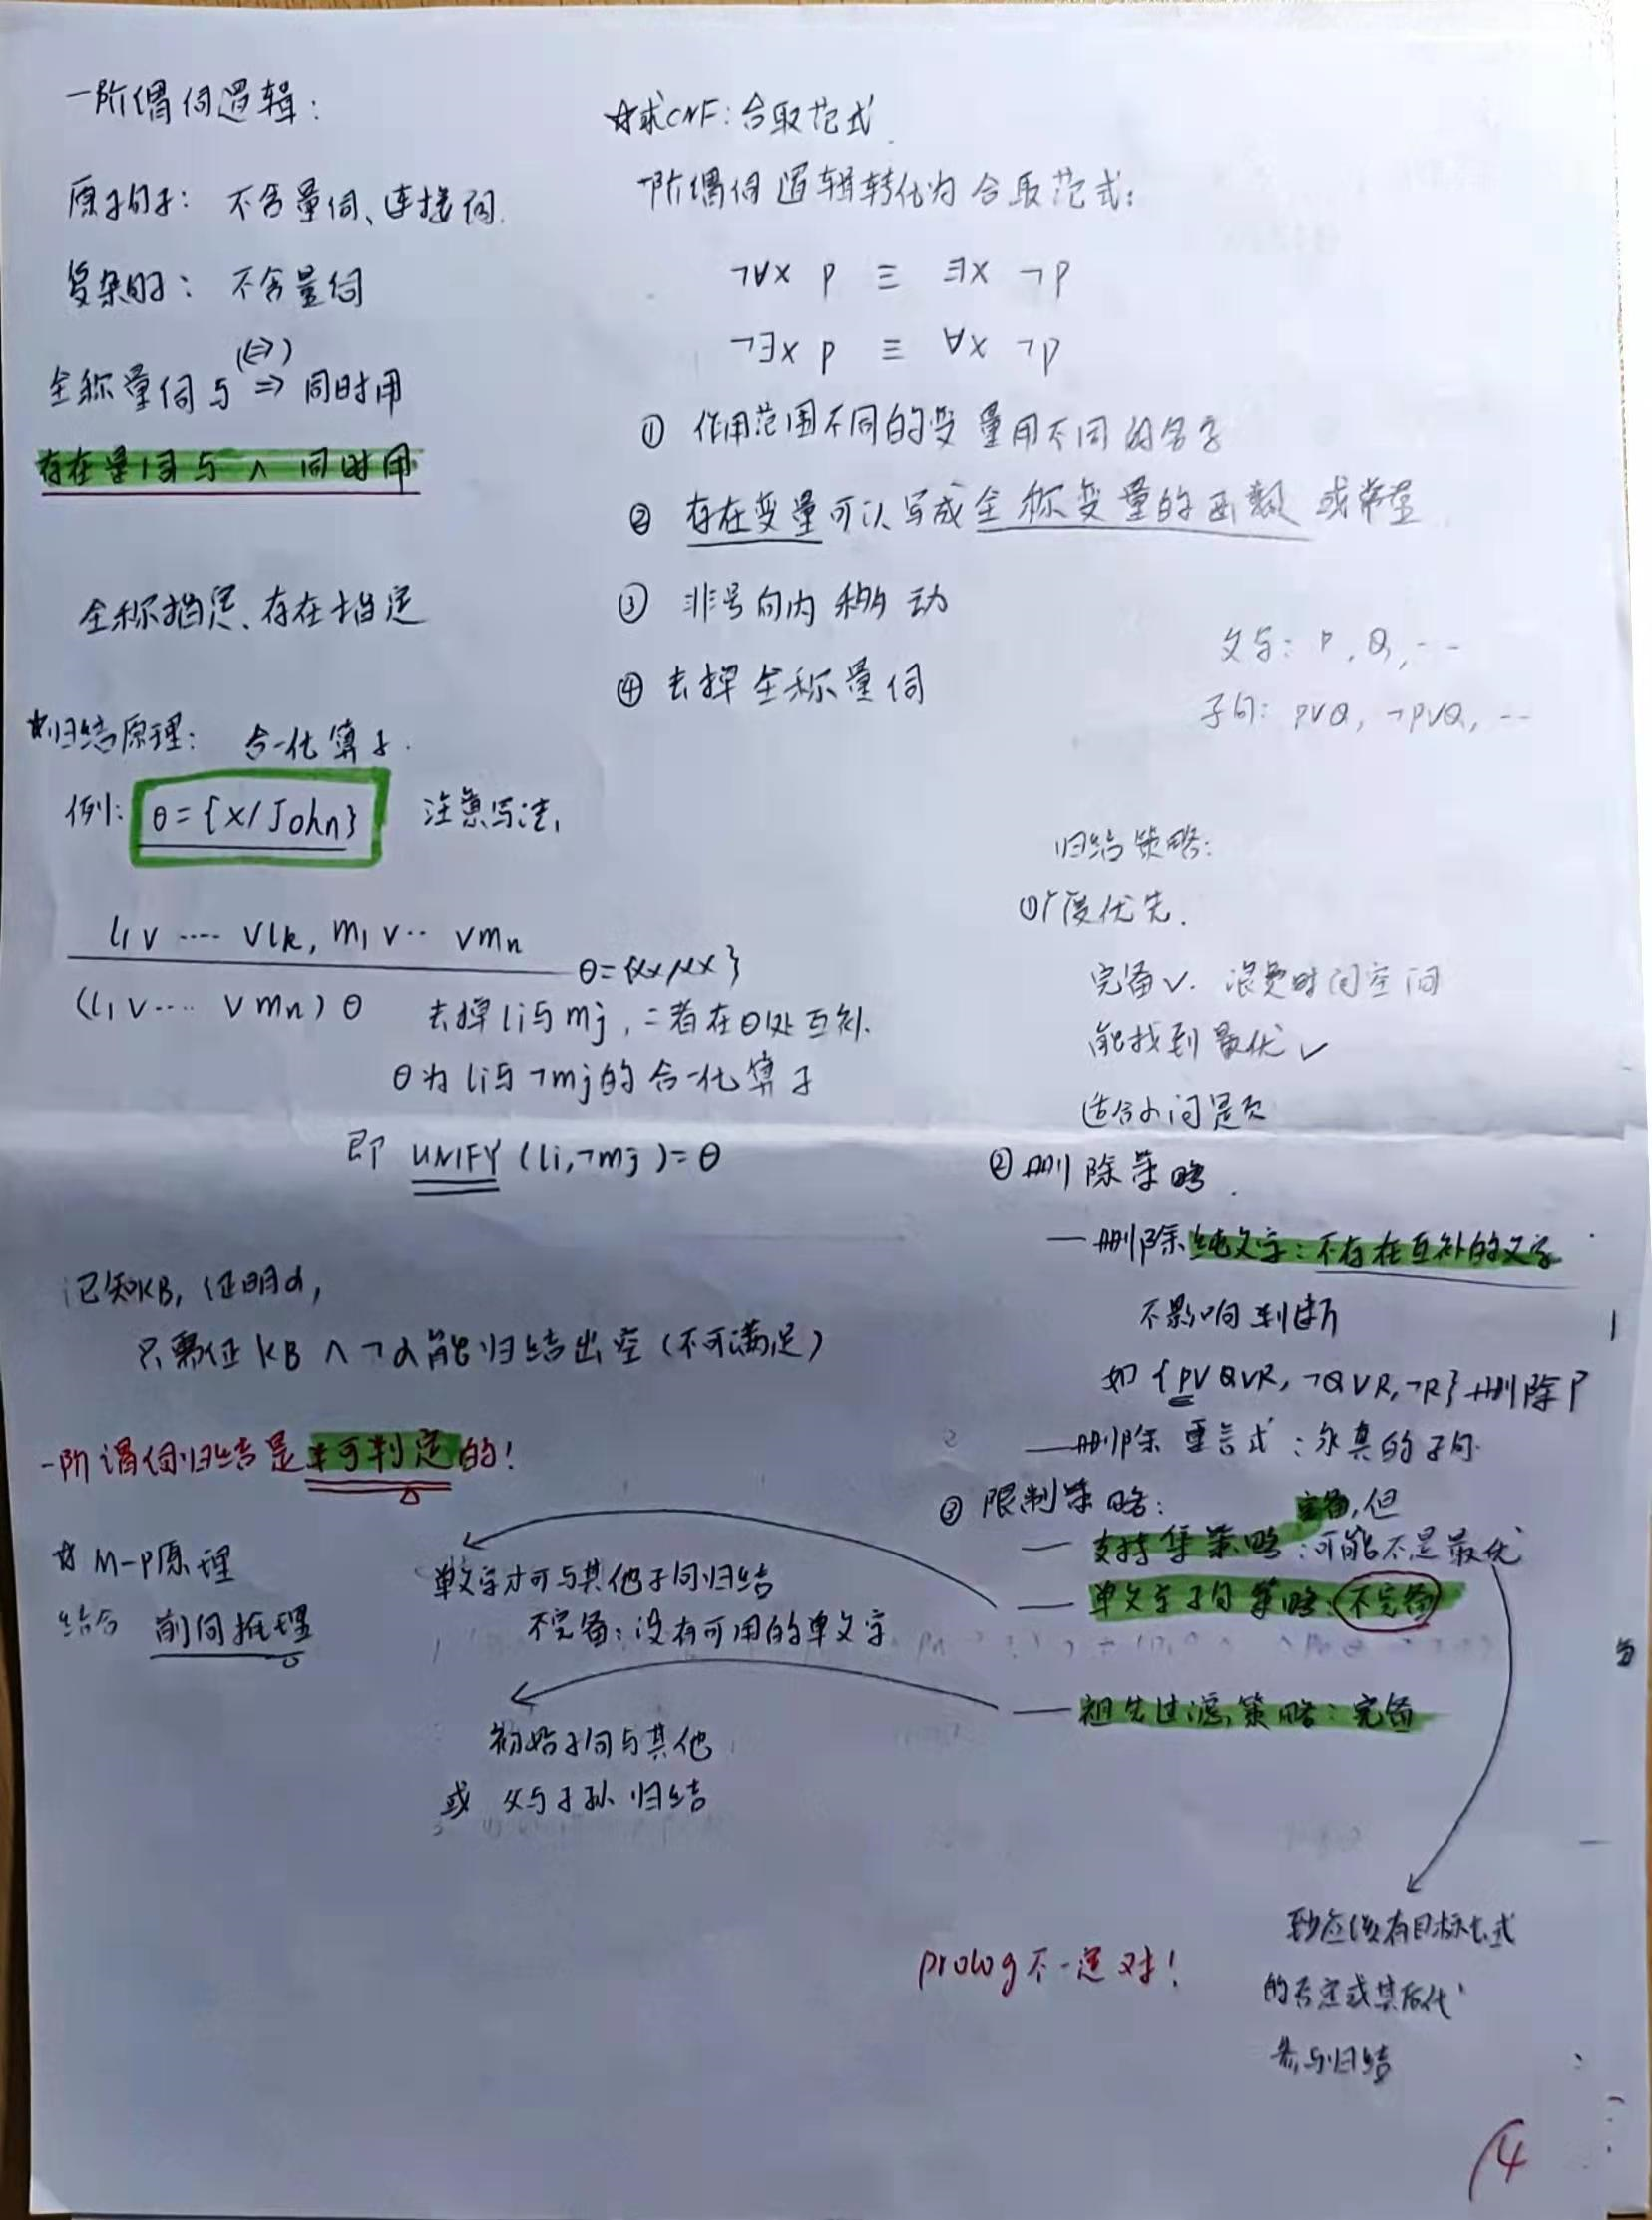 一阶谓词逻辑:
原子句子: 不含量词、连接词.
复杂句子: 不含量词
(⇔)
全称量词与 ⇒ 同时用
存在量词与 ∧ 同时用
全称指定、存在指定
☆归结原理: 合一化算子.
例: θ={x/John} 注意写法,
l₁∨ ···· ∨lk, m₁∨·· ∨mn
(l₁∨···· ∨mn)θ
去掉li与mj, 二者在θ处互补.
θ为li与¬mj的合一化算子
即 UNIFY (li,¬mj)=θ
已知KB, 证明α,
只需证 KB ∧¬α能归结出空(不可满足)
一阶谓词归结是半可判定的!
☆ M-P原理
结合 前向推理
☆求CNF: 合取范式
一阶谓词逻辑转化为合取范式:
¬∀x p ≡ ∃x ¬p
¬∃x p ≡ ∀x ¬p
① 作用范围不同的变量用不同的名字
② 存在变量可以写成全称变量的函数或常量
③ 非号向内移动
④ 去掉全称量词
文字: P, Q, --
子句: P∨Q, ¬P∨Q, --
归结策略:
①广度优先.
完备√. 浪费时间空间
能找到最优√
适合小问题
②删除策略.
— 删除纯文字: 不存在互补的文字
不影响判断
如 {P∨Q∨R, ¬Q∨R, ¬R} 删除P
— 删除重言式: 永真的子句
③ 限制策略:
完备,但
— 支持集策略: 可能不是最优
— 单文字子句策略: 不完备
— 祖先过滤策略: 完备
单文字才可与其他子句归结
不完备: 没有可用的单文字
初始子句与其他
或 父与子孙归结
至少应该有目标公式
的否定或其后代
参与归结
prolog不一定对!
4